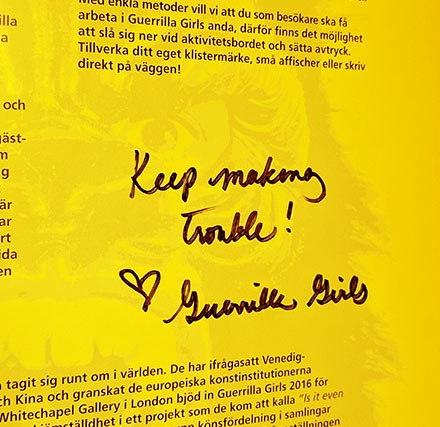 Med enkla metoder vill vi att du som besökare ska få
arbeta i Guerrilla Girls anda, därför finns det möjlighet
att slå sig ner vid aktivitetsbordet och sätta avtryck.
Tillverka ditt eget klistermärke, små affischer eller skriv
direkt på väggen!
och
gäst-
m
g
är
ar
rt
ida
en
Keep making
trouble!
♡ Guerrilla Girls
tagit sig runt om i världen. De har ifrågasatt Venedig-
ch Kina och granskat de europeiska konstinstitutionerna
Whitechapel Gallery i London bjöd in Guerrilla Girls 2016 för
jämställdhet i ett projekt som de kom att kalla "Is it even
könsfördelning i samlingar